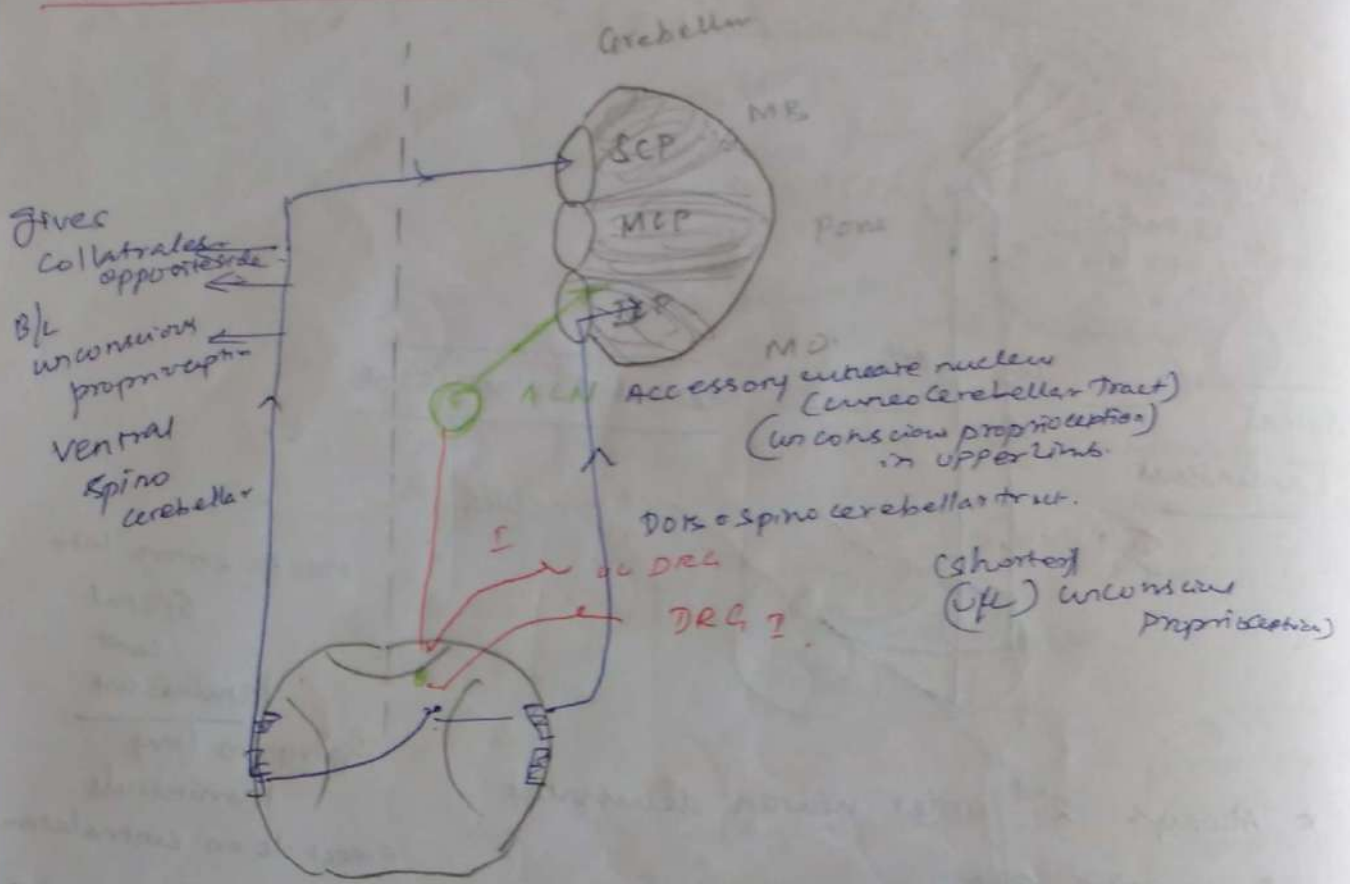 Cerebellum
MB
SCP
MCP
Pons
ICP
MO
Gives
collatrales
opposite side
B/L
unconscious
proprioception
ventral
spino
cerebellar
ACN
Accessory cuneate nucleus
(cuneocerebellar Tract)
(unconscious proprioception)
in upper limb.
spinocerebellar tract.
I
DRG
DRG I
(shortest
unconscious
proprioception)